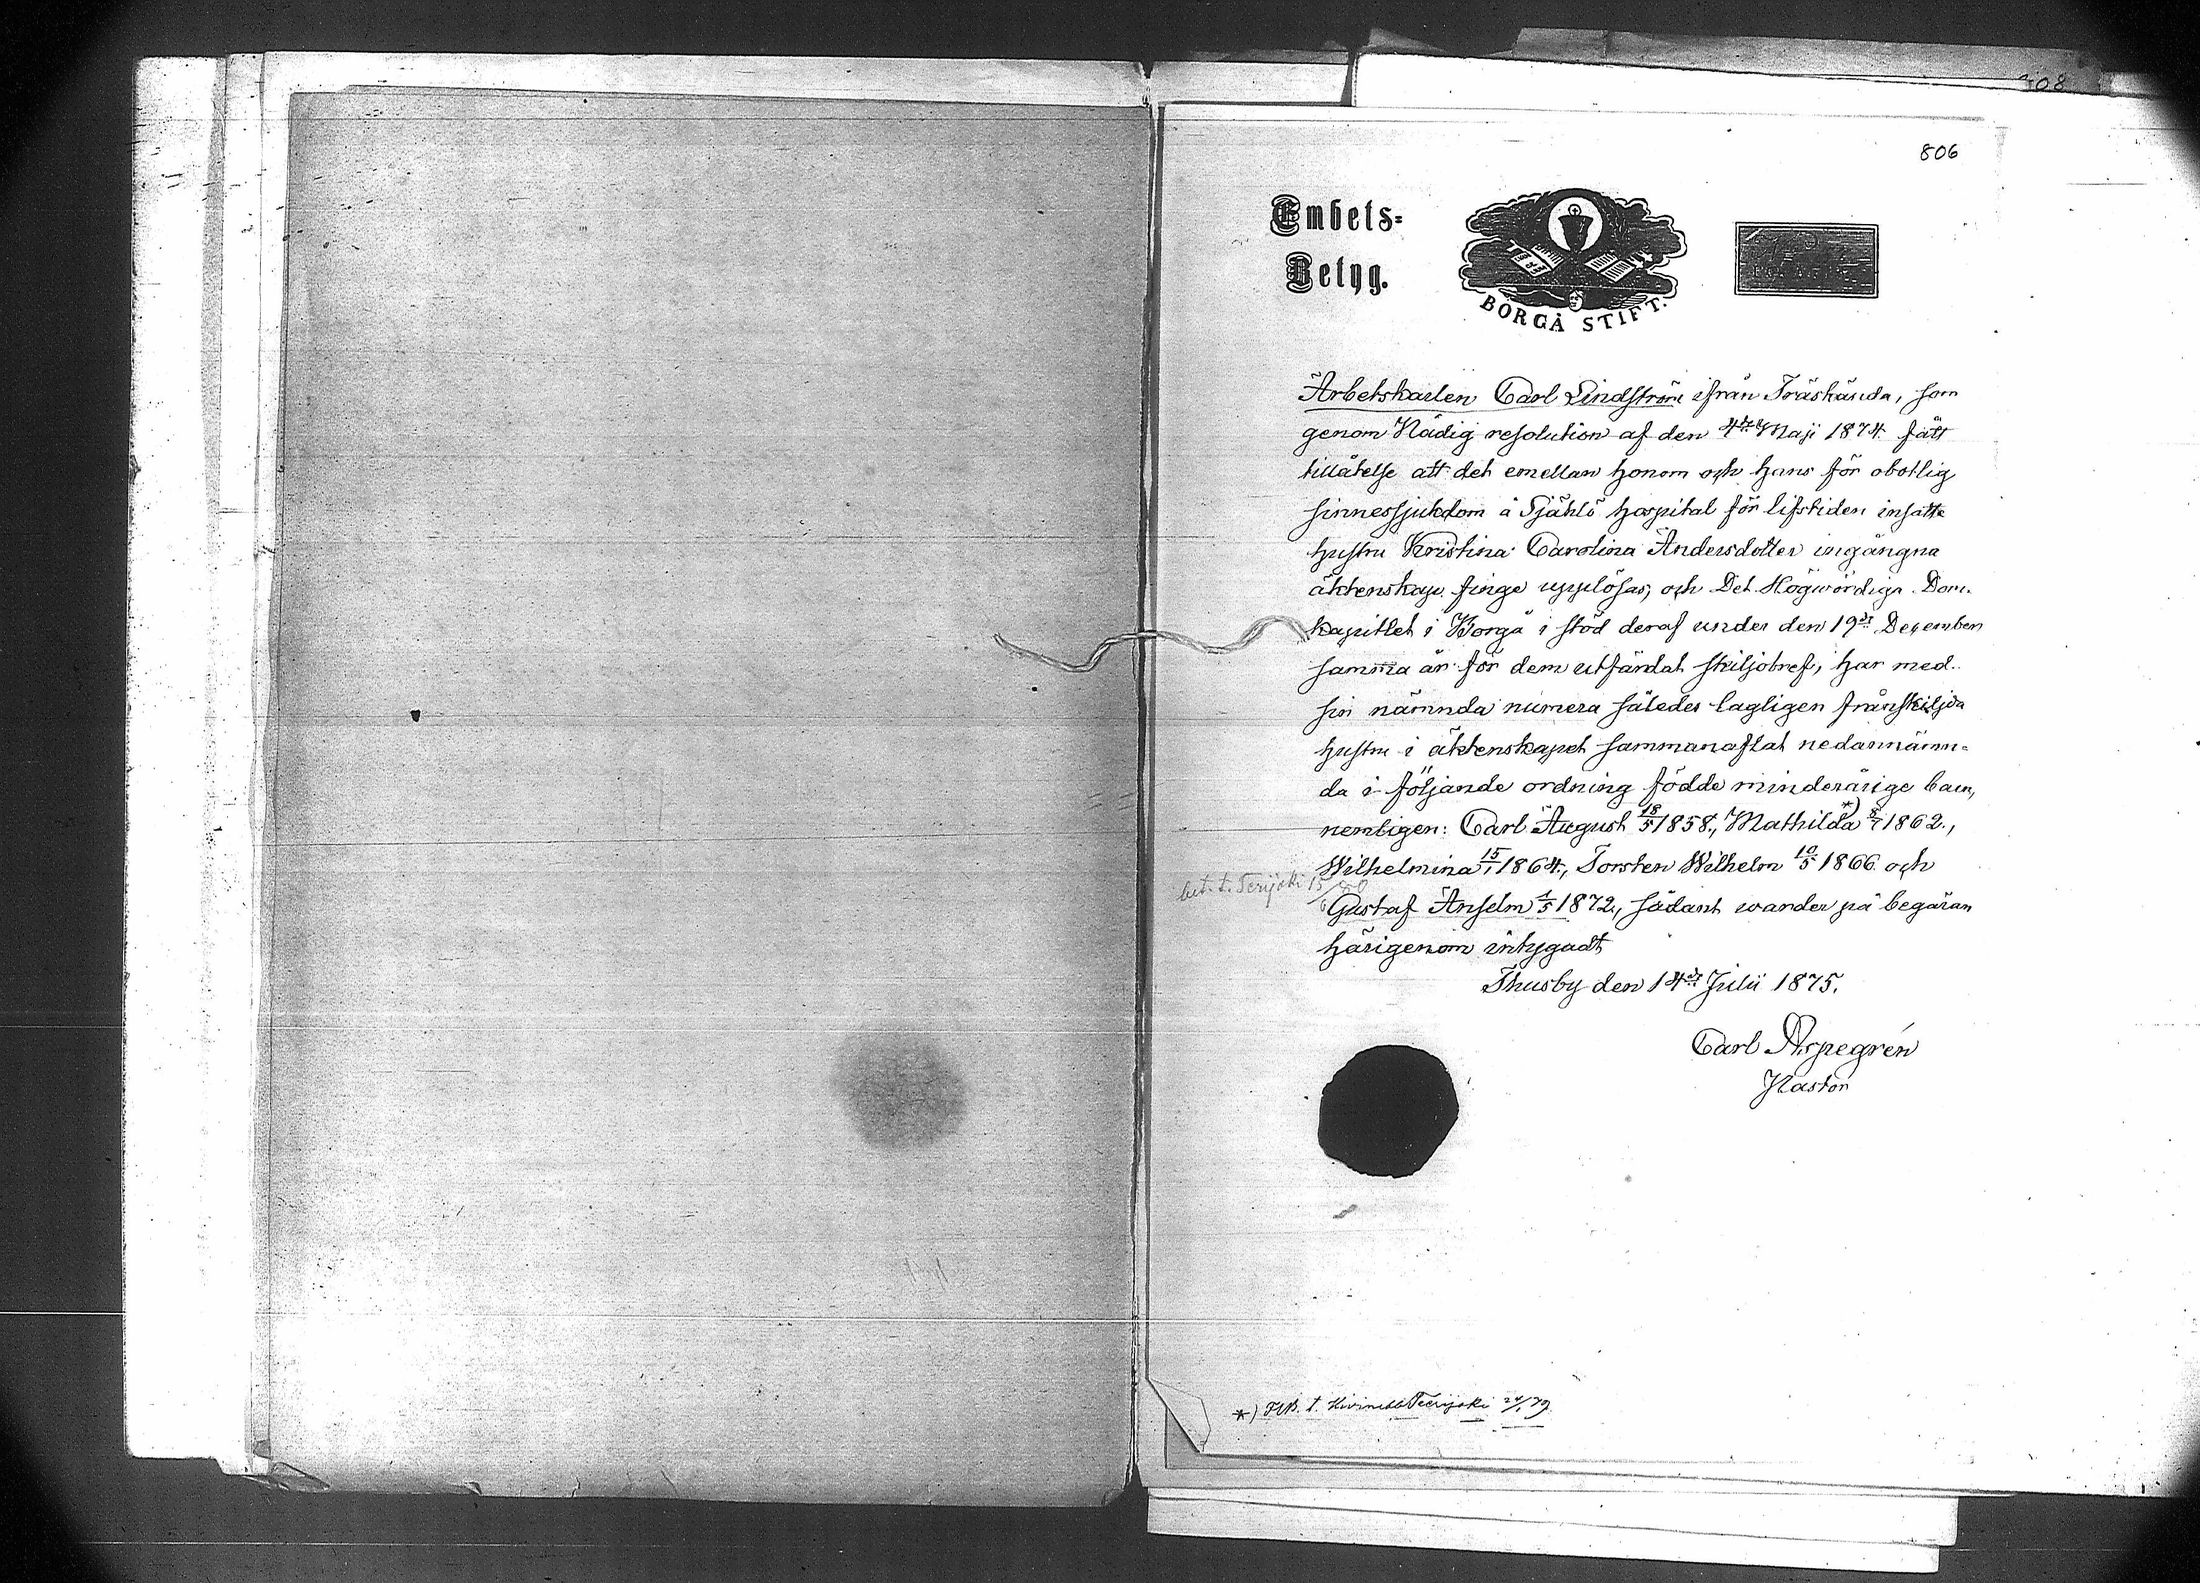 806
Embets-
Betyg.
BORGÅ STIFT.
Arbetskarlen Carl Lindström ifrån Träskända, som
genom Nådig resolution af den 4de Maji 1874 fått
tillåtelse att det emellan honom och hans för obotlig
sinnessjukdom å Själö hospital för lifstiden insatta
hustru Kristina Carolina Andersdotter ingångna
äktenskap finge upplösas, och Det Högwördiga Dom-
kapitlet i Borgå i stöd deraf under den 19de December
samma år för dem utfärdat skiljobref, har med
sin nämnda numera således lagligen frånskiljda
hustru i äktenskapet sammanaflat nedannämn-
da i följande ordning födde minderårige barn,
nemligen: Carl August 18/5 1858., Mathilda *) 8/7 1862.,
Wilhelmina 15/1 1864., Torsten Wilhelm 10/5 1866 och
bet. t. Terijoki 15/6 80
Gustaf Anselm 1/5 1872, sådant warder på begäran
härigenom intygadt
Thusby den 14de Julii 1875.
Carl Aspegrén
Pastor
*) t. Kivinebb Terijoki 79